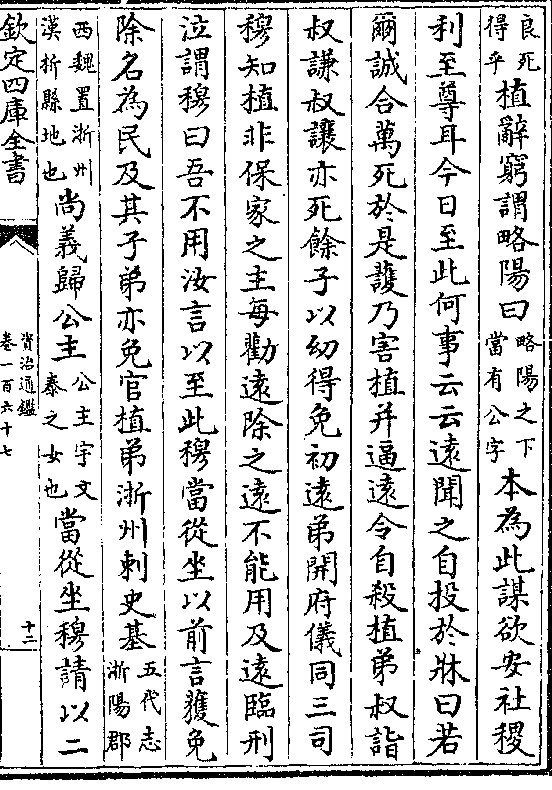 良死得乎植辭窮謂略陽曰略陽之下當有公字本為此謀欲安社稷
利至尊耳今日至此何事云云遠聞之自投於牀曰若
爾誠合萬死於是護乃害植并逼遠令自殺植弟叔詣
叔謙叔讓亦死餘子以幼得免初遠弟開府儀同三司
穆知植非保家之主每勸遠除之遠不能用及遠臨刑
泣謂穆曰吾不用汝言以至此穆當從坐以前言獲免
除名為民及其子弟亦免官植弟淅州刺史基五代志淅陽郡
西魏置淅州漢析縣地也尚義歸公主公主宇文泰之女也當從坐穆請以二
欽定四庫全書
資治通鑑
卷一百六十七
十二